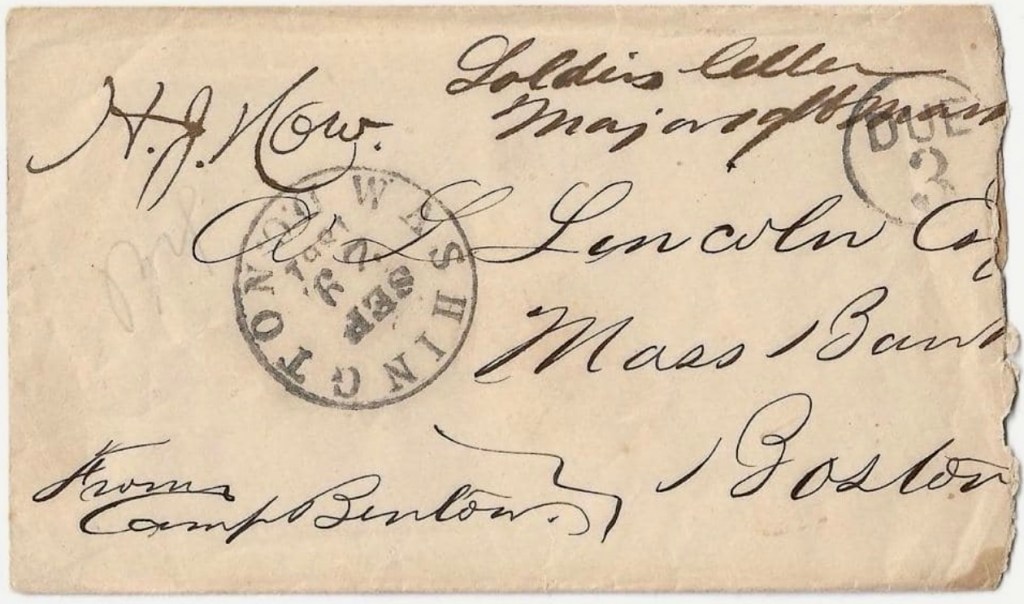 Soldiers letter
H. J. How. Major 19th Mass
DUE 3
WASHINGTON D.C.
SEP
1861
A L Lincoln Esq
Mass Bank
Boston
From
Camp Benton.